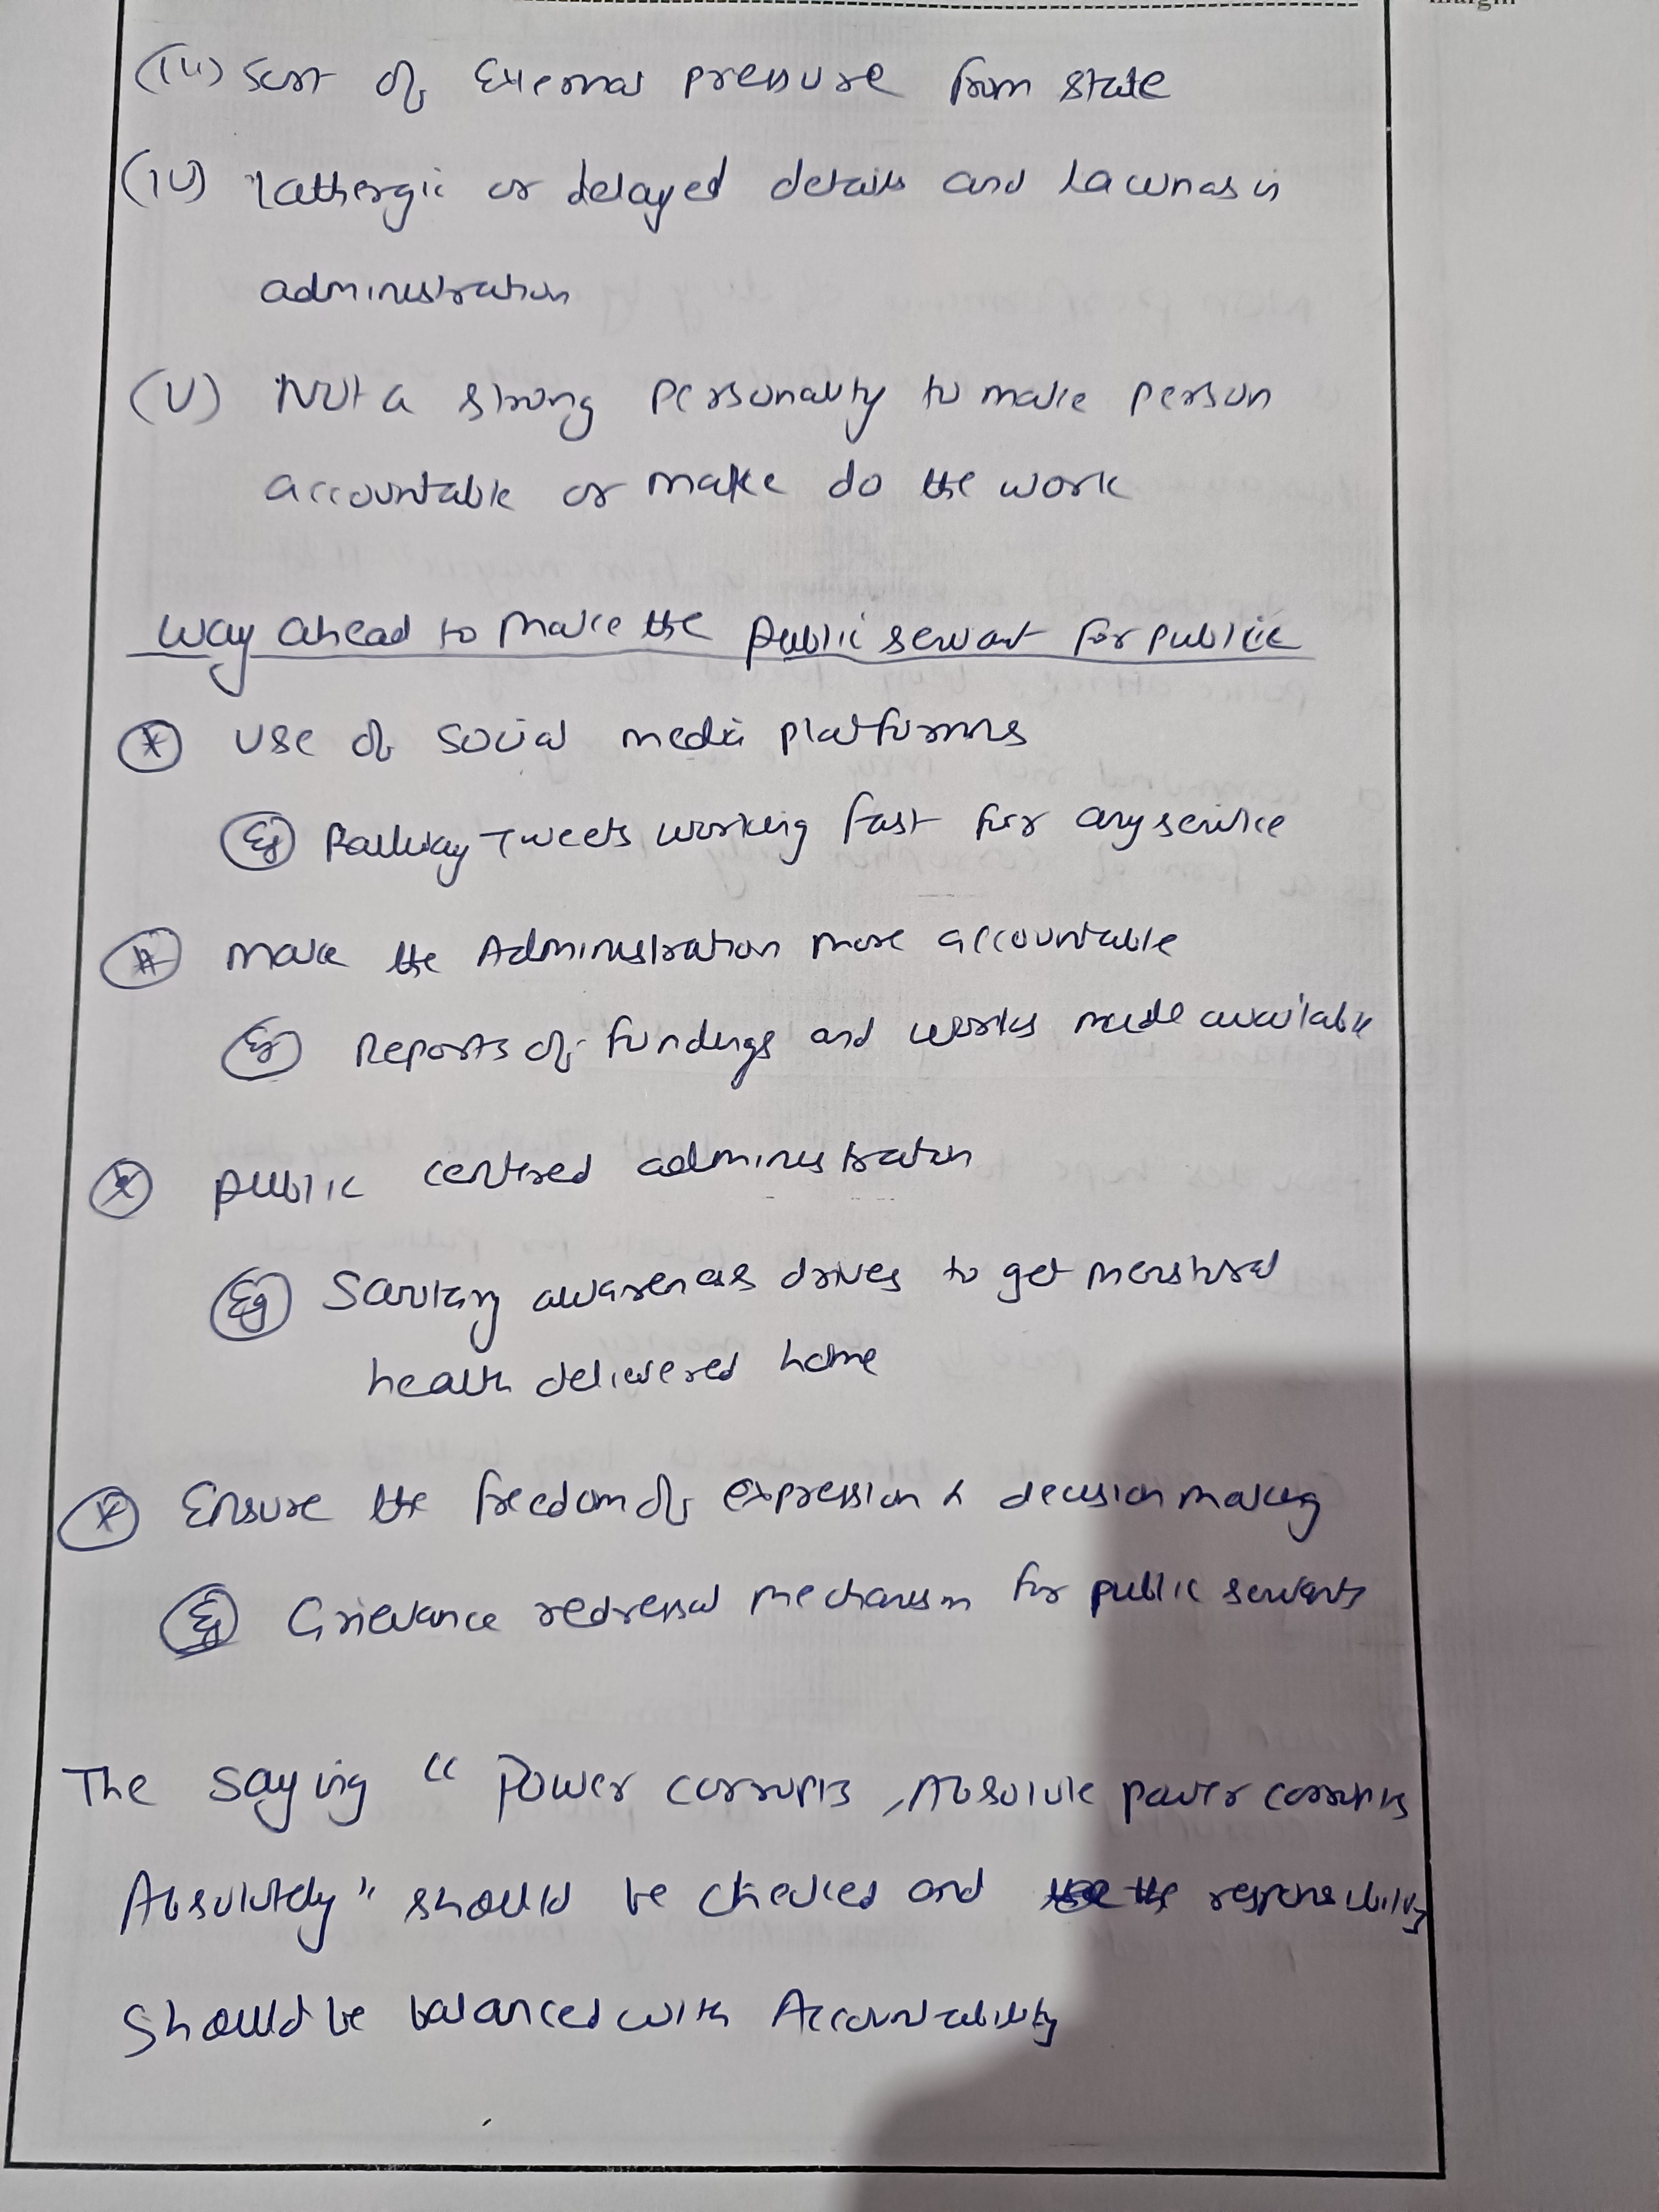 (iii) Sort of External pressure from state
(iv) Lathergic or delayed details and Lacunas in
administration
(v) Not a strong personality to make person
accountable or make do the work
Way ahead to make the public servant for public
* Use of Social media platforms
Eg Railway Tweets working fast for any service
* Make the Administration more accountable
Eg Reports of fundings and works made available
* public centred administration
Eg Sanitary awareness drives to get menstural
health delivered home
* Ensure the freedom of expression & decision making
Eg Grievance redressal mechanism for public servants
The saying "Power corrupts, Absolute power corrupts
Absolutely" should be checked and the responsibility
should be balanced with Accountability